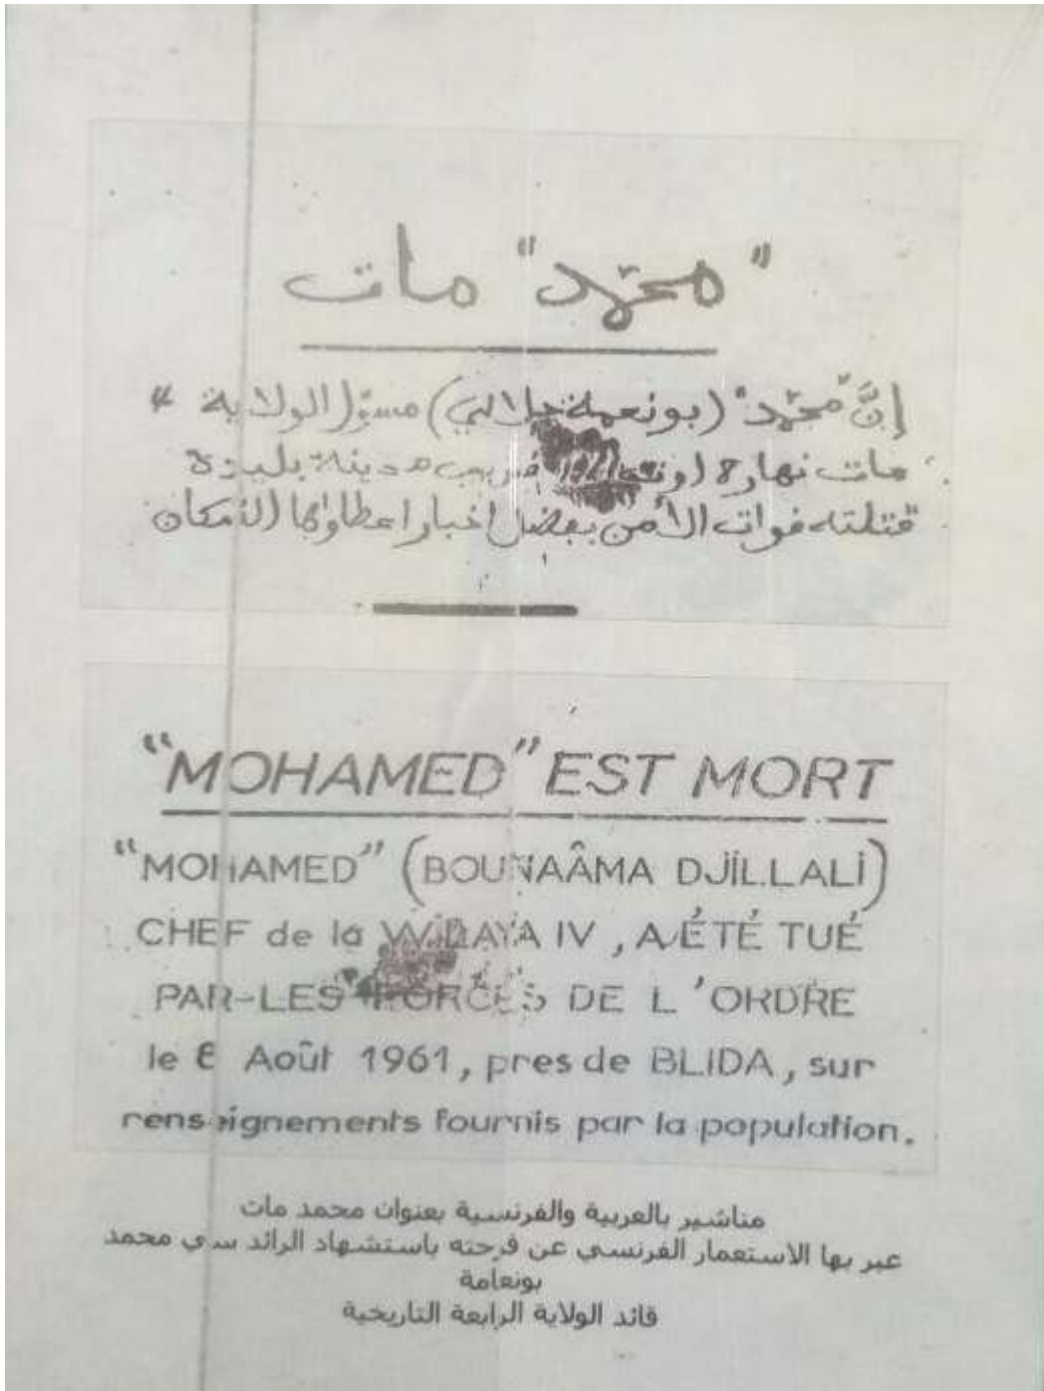 "محمّد" مات
إنَّ "محمّد" (بونعمة جلالي) مسؤل الولاية ٤
مات نهاره قريب مدينة بليدة
قتلته قوات الأمن بفضل اخبار اعطاوها السكان
"MOHAMED" EST MORT
"MOHAMED" (BOUNAÂMA DJILLALI)
CHEF de la WILAYA IV, A ÉTÉ TUÉ
PAR LES FORCES DE L'ORDRE
le 8 Août 1961, pres de BLIDA, sur
renseignements fournis par la population.
مناشير بالعربية والفرنسية بعنوان محمد مات
عبر بها الاستعمار الفرنسي عن فرحته باستشهاد الرائد سي محمد
بونعامة
قائد الولاية الرابعة التاريخية